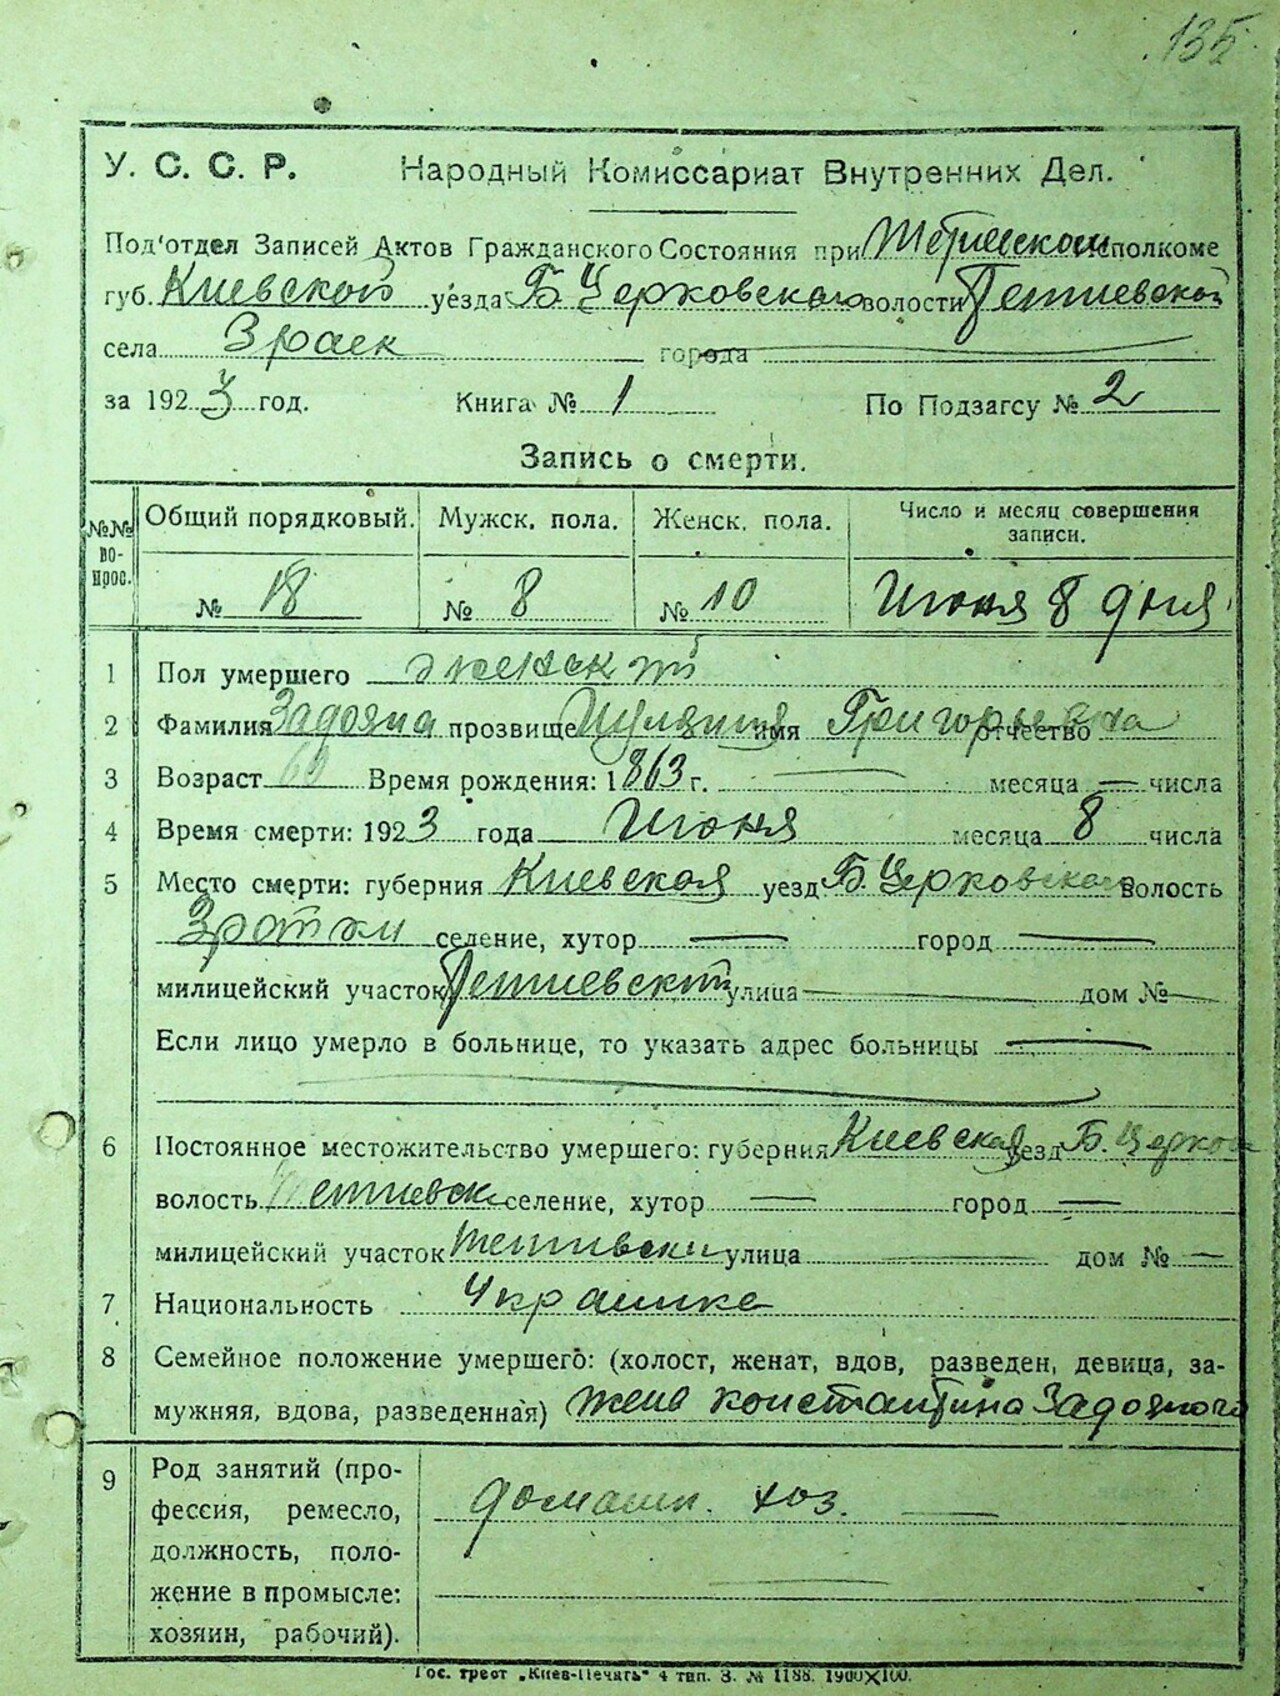 135
У. С. С. Р. Народный Комиссариат Внутренних Дел.
Под'отдел Записей Актов Гражданского Состояния при исполкоме
губ. Киевской уезда Б Церковского волости Тетиевской
села города
за 1923 год. Книга № 1 По Подзагсу № 2
Запись о смерти.
№№ во-прос. Общий порядковый. Мужск. пола. Женск. пола. Число и месяц совершения записи.
№ 18 № 8 № 10 Июня 8 дня
1 Пол умершего женский
2 Фамилия Задояна прозвище имя Григорьевна отчество
3 Возраст 60 Время рождения: 1863 г. — месяца — числа
4 Время смерти: 1923 года Июня месяца 8 числа
5 Место смерти: губерния Киевская уезд Б. Церковского волость
селение, хутор — город —
милицейский участок Тетиевский улица — дом № —
Если лицо умерло в больнице, то указать адрес больницы —
6 Постоянное местожительство умершего: губерния Киевская уезд Б. Церков
волость Тетиевск селение, хутор — город —
милицейский участок улица дом № —
7 Национальность Украинка
8 Семейное положение умершего: (холост, женат, вдов, разведен, девица, за-
мужняя, вдова, разведенная) жена константина Задояного
9 Род занятий (про-
фессия, ремесло, домашн. хоз. —
должность, поло-
жение в промысле:
хозяин, рабочий).
Гос. трест „Киев-Печать" 4 тип. З. № 1188. 1900X100.